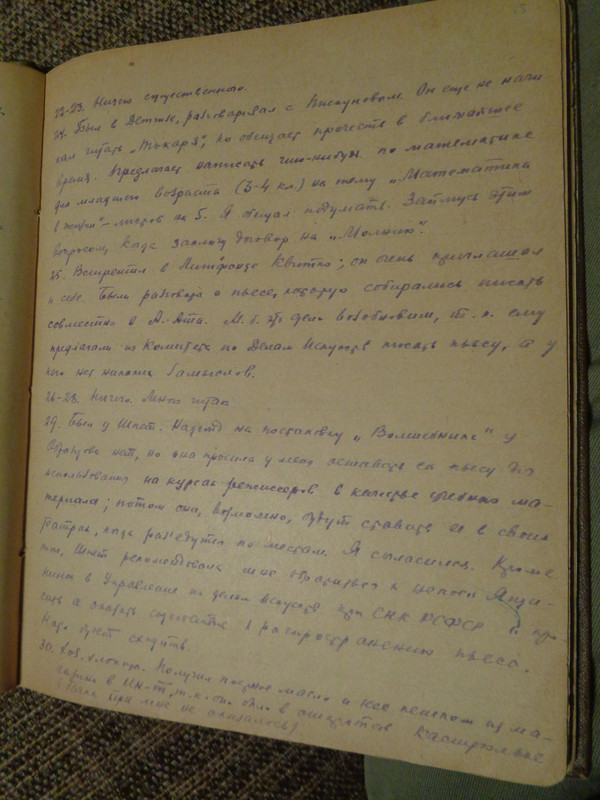 22-23. Ничего существенного.
24. Был в Детгизе, разговаривал с Пискуновым. Он еще не начи-
нал читать „Токаря", но обещает прочесть в ближайшее
время. Предлагает написать что-нибудь по математике
для младшего возраста (3-4 кл.) на тему „Математика
в жизни" – листов на 5. Я обещал подумать. Займусь этим
вопросом, когда заключу договор на „Молнию".
25. Встретил в Литфонде Квитко; он очень приглашал
к себе. Были разговоры о пьесе, которую собирались писать
совместно в А.-Ата. М.б. это дело возобновим, т.к. ему
предлагали из Комитета по Делам Искусств писать пьесу, а у
него нет никаких замыслов.
26-28. Ничего. Много читаю
29. Был у Шпет. Надежд на постановку „Волшебника" у
Образцова нет, но она просила у меня оставить ей пьесу для
использования на курсах режиссеров в качестве учебного ма-
териала; потом они, возможно, будут ставить ее в своих
театрах, когда разъедутся по местам. Я согласился. Кроме
того, Шпет рекомендовала мне обратиться к
в Управление по делам искусств при СНК РСФСР и
оказать содействие в распространению пьесы.
Надо будет сходить.
30. Хоз. хлопоты. Получил масло и нес пешком из ма-
газина в Ин-т, т.к. оно было в кастрюльке
(банки при мне не оказалось)